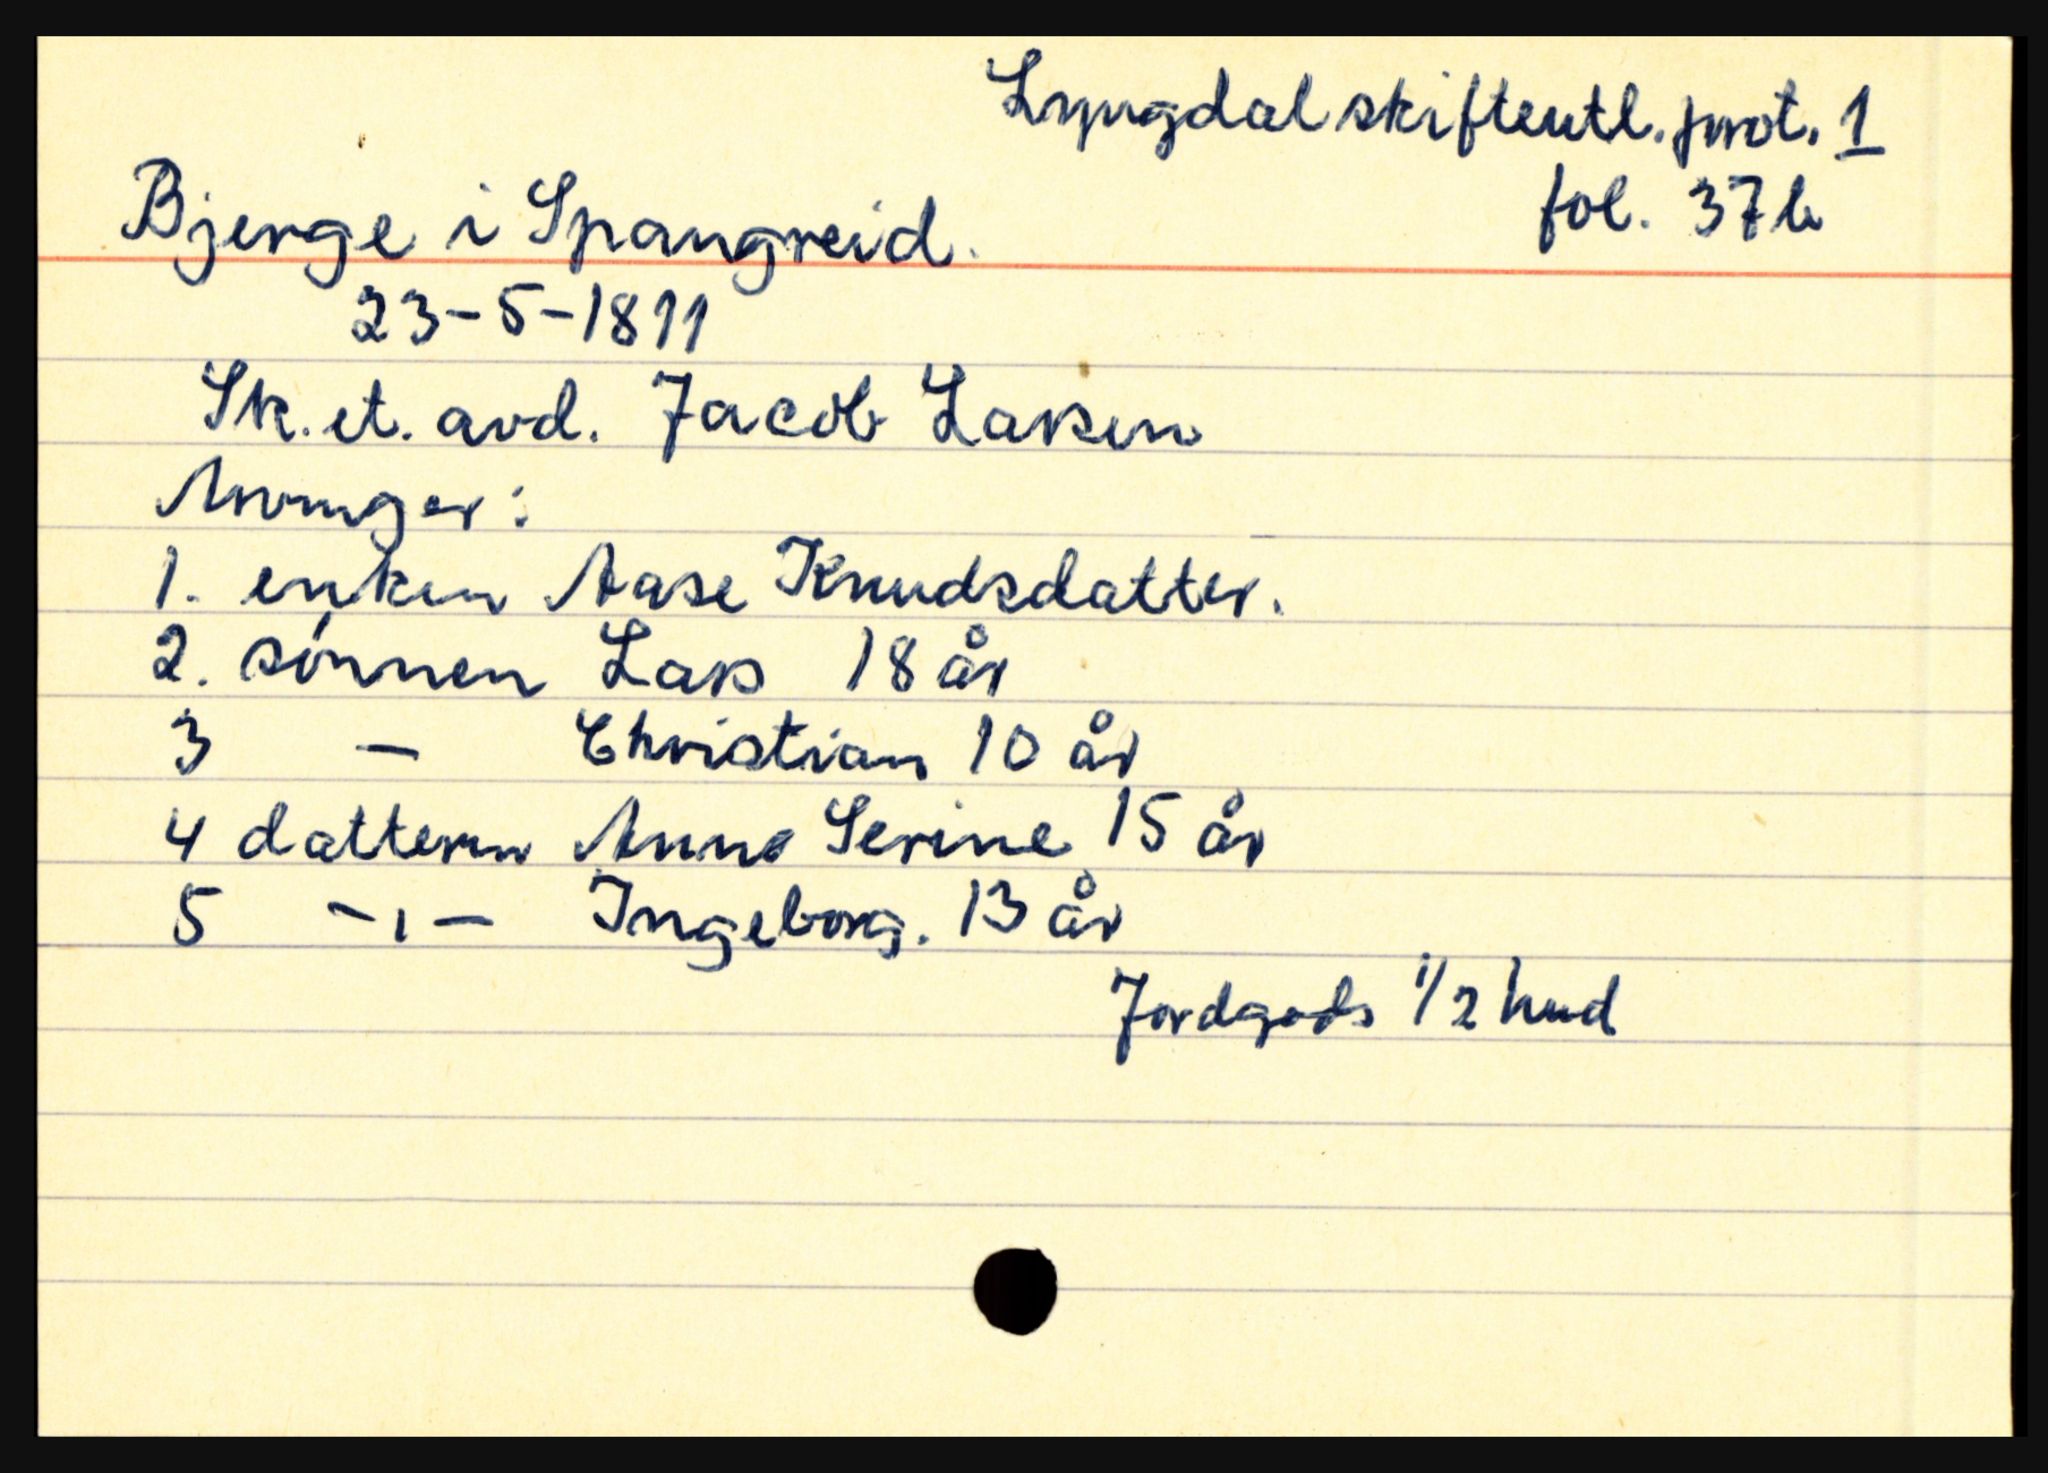 Lyngdal skifteutl. prot. 1
fol. 37b
Bjerge i Spangreid.
23-5-1811
Sk. et. avd. Jacob Larsen
Arvinger:
1. enken Aase Knudsdatter.
2. sønnen Lars 18 år
3 — Christian 10 år
4 datteren Anne Serine 15 år
5 -,- Ingeborg. 13 år
Jordgods 1/2 hud